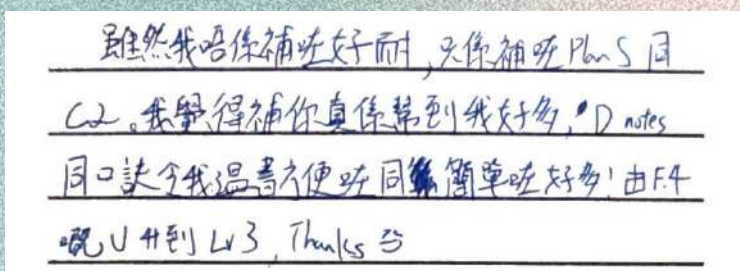 雖然我唔係補咗好耐,只係補咗Plan S 同
C2。我覺得補你真係幫到我好多,D notes
同口訣令我溫書方便咗同簡單咗好多!由F.4
嘅U升到Lv3, Thanks